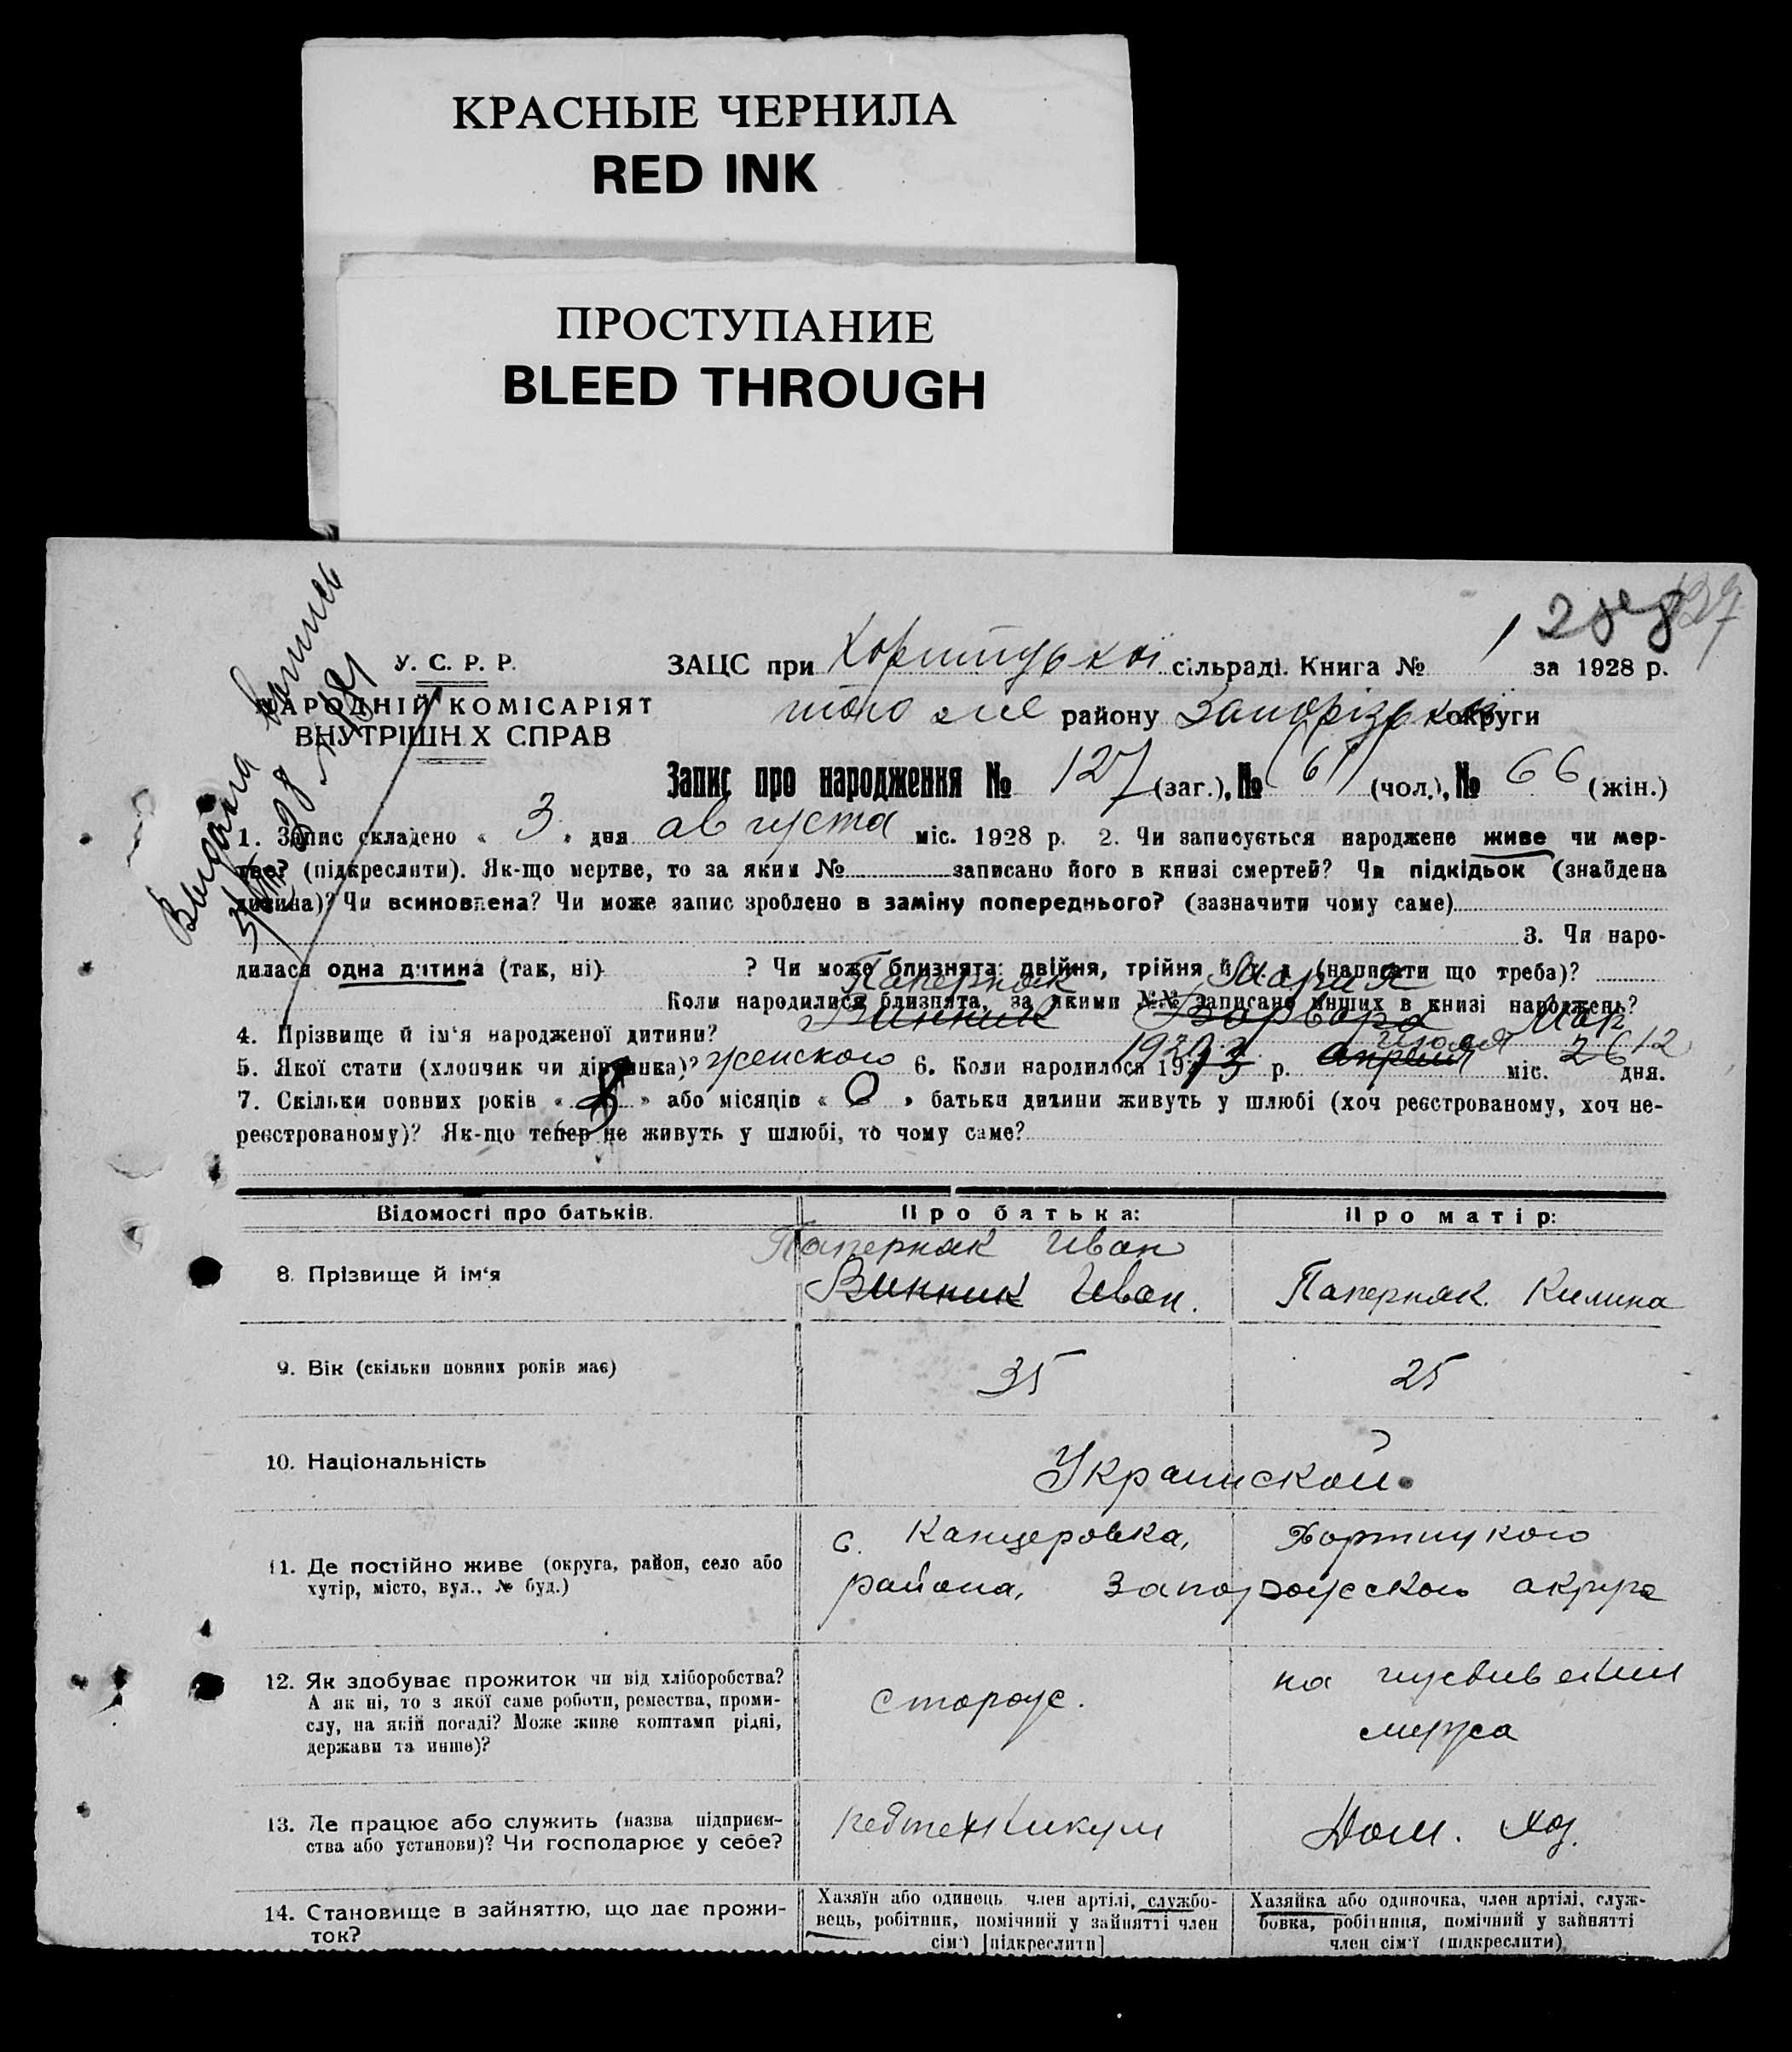 КРАСНЫЕ ЧЕРНИЛА
RED INK
ПРОСТУПАНИЕ
BLEED THROUGH
127
У. С. Р. Р.
НАРОДНІЙ КОМІСАРІЯТ
ВНУТРІШН Х СПРАВ
Видана
ЗАЦС при Хортицької сільраді. Книга № 1 за 1928 р.
того же району Запорізької округи
Запис про народження № 127 (заг.), № 61 (чол.), № 66 (жін.)
1. Запис складено « 3 » дня августа міс. 1928 р. 2. Чи записується народжене живе чи мер-
тве? (підкреслити). Як-що мертве, то за яким № записано його в книзі смертей? Чи підкідьок (знайдена
дитина)? Чи всиновлена? Чи може запис зроблено в заміну попереднього? (зазначити чому саме)
3. Чи наро-
дилася одна дитина (так, ні) ? Чи може близнята: двійня, трійня й т. д. (написати що треба)?
Коли народилися близнята, за якими №№ записано инших в книзі народжень?
Паперняк Мария
4. Прізвище й ім‘я народженої дитини? Винник Варвара
5. Якої стати (хлопчик чи дівчинка)? женского 6. Коли народилося 19 р. апреля июля міс. 26 12 дня.
7. Скільки повних років « » або місяців « 0 » батьки дитини живуть у шлюбі (хоч реєстрованому, хоч не-
реєстрованому)? Як-що тепер не живуть у шлюбі, то чому саме?
Відомості про батьків. Про батька: Про матір:
Паперняк Иван
8. Прізвище й ім‘я Винник Иван. Паперняк Килина
9. Вік (скільки повних років має) 35 25
10. Національність Украинской
11. Де постійно живе (округа, район, село або
хутір, місто, вул., № буд.)
с. Канцеровка, Хортицкого
района, Запорожского округа
12. Як здобуває прожиток чи від хліборобства?
А як ні, то з якої саме роботи, ремества, проми-
слу, на якій посаді? Може живе коштами рідні,
держави та инше)?
сторож.
на иждивении
мужа
13. Де працює або служить (назва підприєм-
ства або установи)? Чи господарює у себе?
Педтехникум
Дом. хоз.
14. Становище в зайняттю, що дає прожи-
ток?
Хазяїн або одинець член артілі, службо-
вець, робітник, помічний у зайнятті член
сім‘ї [підкреслити]
Хазяйка або одиночка, член артілі, служ-
бовка, робітниця, помічний у зайнятті
член сім‘ї (підкреслити)